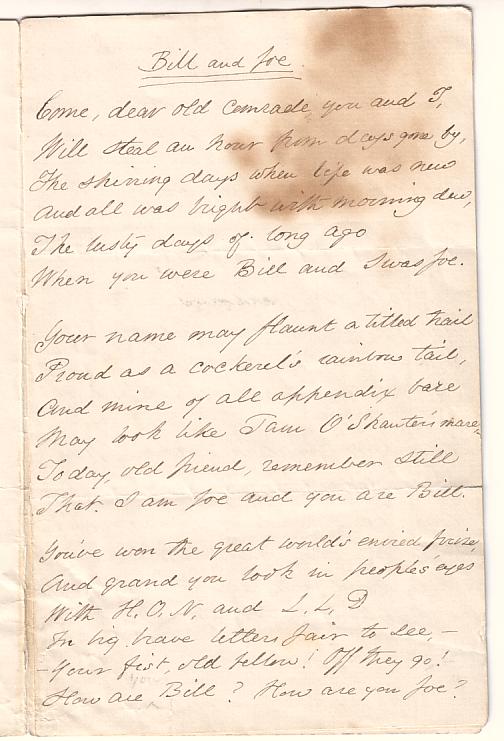 Bill and Joe.
Come, dear old comrade, you and I,
Will steal an hour from days gone by,
The shining days when life was new
And all was bright with morning dew,
The lusty days of long ago
When you were Bill and I was Joe.
Your name may flaunt a titled trail
Proud as a cockerel's rainbow tail,
And mine of all appendix bare
May look like Tam O'Shanter's mare,
Today, old friend, remember still
That I am Joe and you are Bill.
You've won the great world's envied prize,
And grand you look in people's eyes
With H.O.N. and L.L.D
In big brave letters fair to see, -
- Your fist, old fellow! Off they go!
How are Bill? How are you Joe?